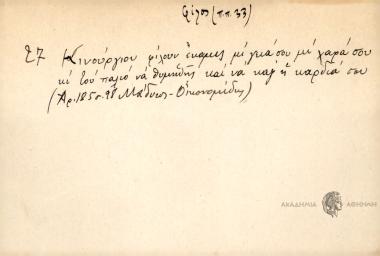 φίλος (π.π. 33)
27 Κινούργιου φίλουν έκαμες μέ γειά σου μέ χαρά σου
κί τού παλιό νά θυμηθής καί νά καῆ ἡ καρδιά σου
(Αρ. 185 σ. 98 Μάδυτος - Οἰκονομίδης)
ΑΚΑΔΗΜΙΑ ΑΘΗΝΩΝ